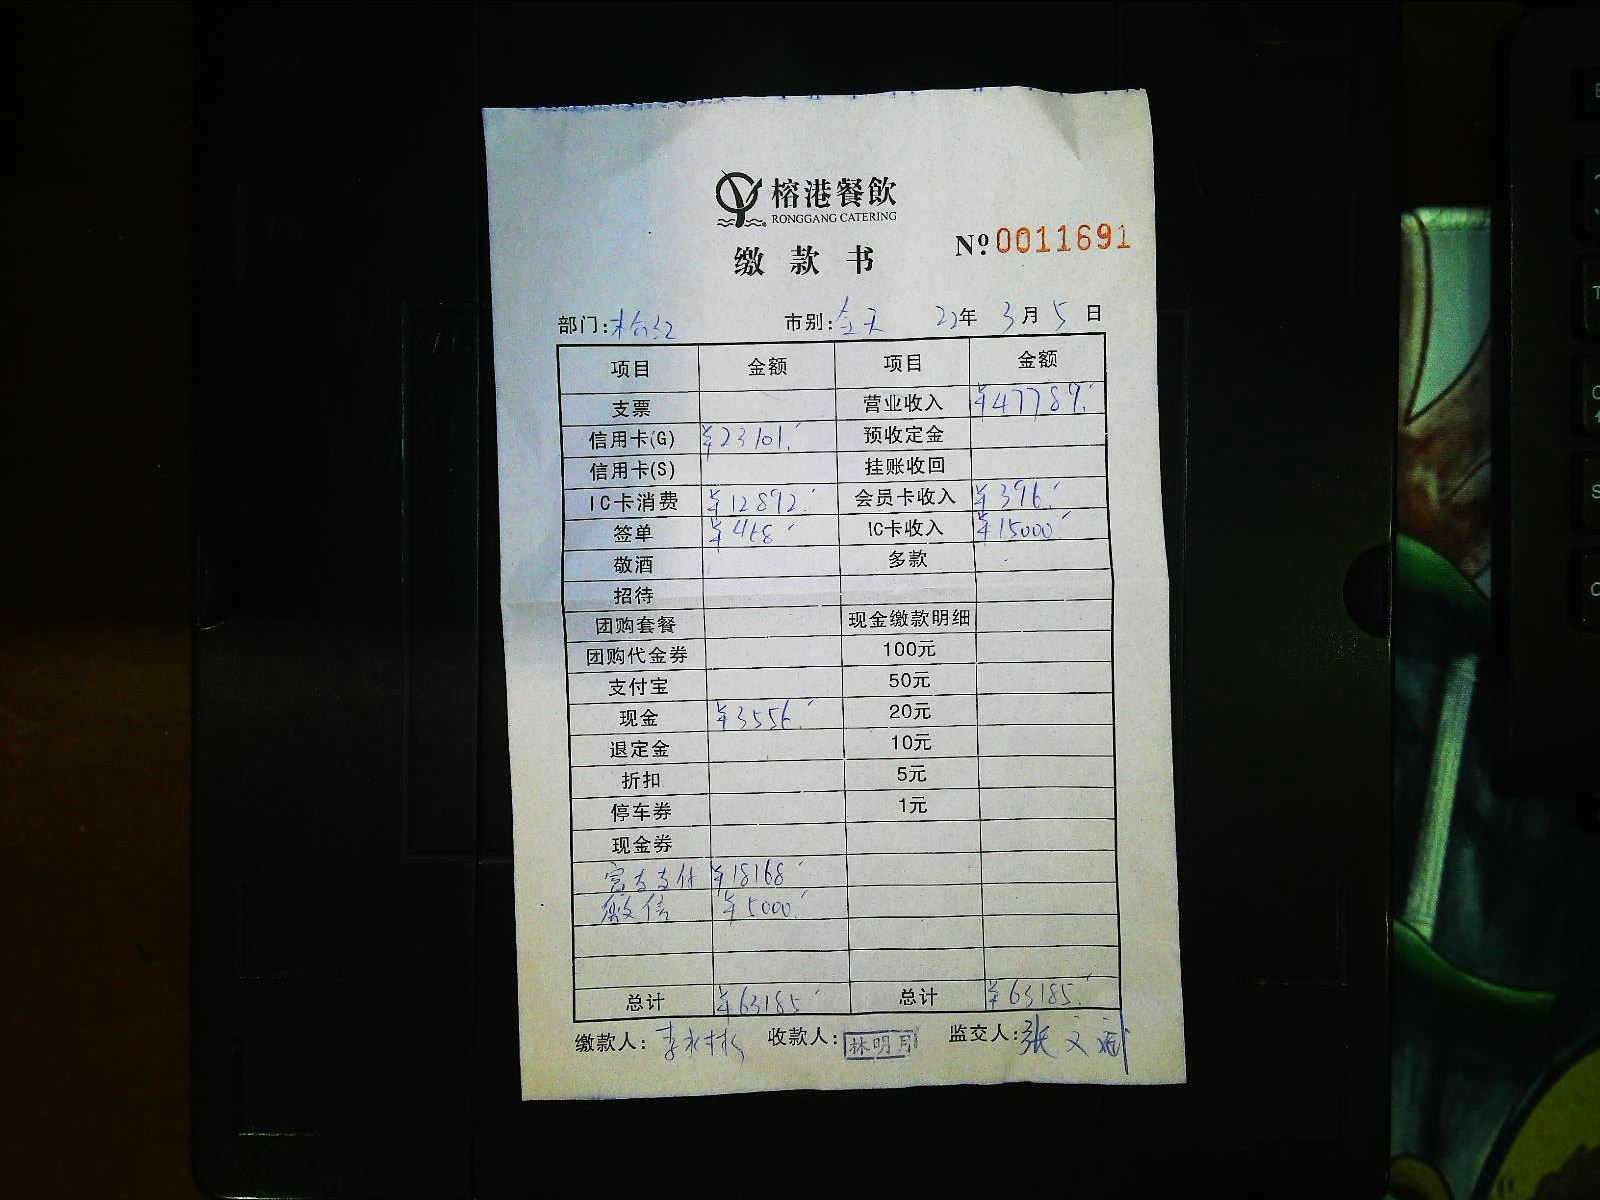 榕港餐飲
RONGGANG CATERING
缴款书 Nº 0011691
部门: 市别:全天 22年 3月 5日
项目 金额 项目 金额
支票 营业收入 ¥47789.
信用卡(G) ¥23101. 预收定金
信用卡(S) 挂账收回
IC卡消费 ¥12892. 会员卡收入 ¥396.
签单 ¥468 IC卡收入 ¥15000
敬酒 多款
招待
团购套餐 现金缴款明细
团购代金券 100元
支付宝 50元
现金 ¥3556. 20元
退定金 10元
折扣 5元
停车券 1元
现金券
富友支付 ¥18168
微信 ¥5000.
总计 ¥63185 总计 ¥63185.
缴款人: 收款人:林明月 监交人:张文